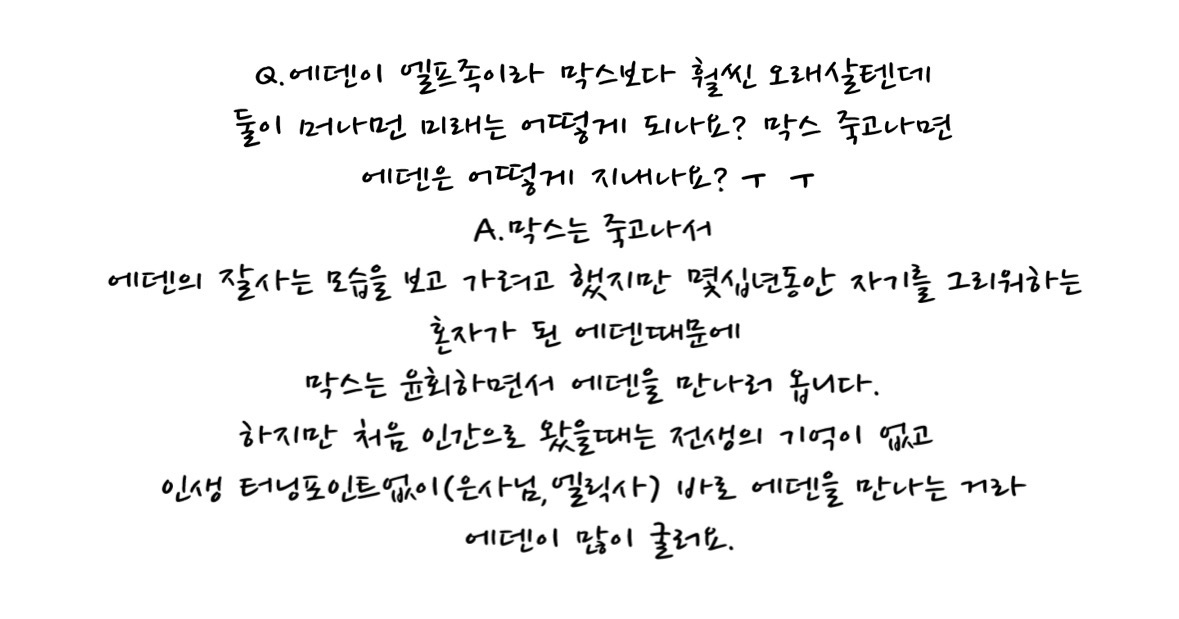 Q.에덴이 엘프족이라 막스보다 훨씬 오래살텐데
둘이 머나먼 미래는 어떻게 되나요? 막스 죽고나면
에덴은 어떻게 지내나요? ㅜ ㅜ
A.막스는 죽고나서
에덴의 잘사는 모습을 보고 가려고 했지만 몇십년동안 자기를 그리워하는
혼자가 된 에덴때문에
막스는 윤회하면서 에덴을 만나러 옵니다.
하지만 처음 인간으로 왔을때는 전생의 기억이 없고
인생 터닝포인트없이(은사님,엘릭사) 바로 에덴을 만나는 거라
에덴이 많이 굴러요.